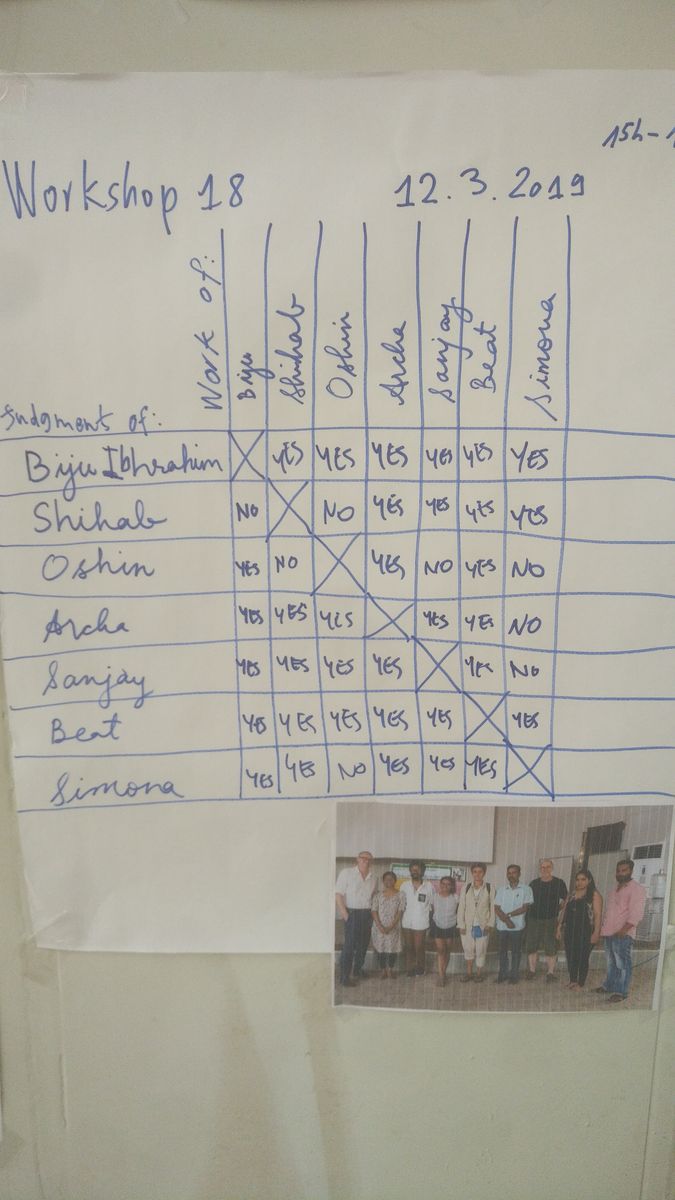 15h-1
Workshop 18 12.3.2019
Work of: Biju Shihab Oshin Archa Sanjay Beat Simona
Judgment of:
Biju Ibhrahim YES YES YES YES YES YES
Shihab NO NO YES YES YES YES
Oshin YES NO YES NO YES NO
Archa YES YES YES YES YES NO
Sanjay YES YES YES YES YES NO
Beat YES YES YES YES YES YES
Simona YES YES NO YES YES YES